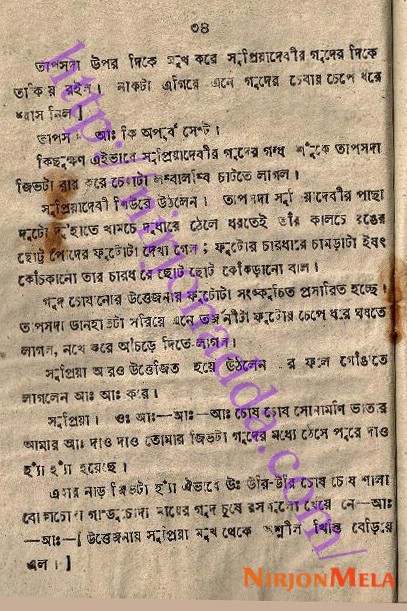 ৩৪
তাপসদা উপর দিকে মুখ করে সুপ্রিয়াদেবীর গুদের দিকে
তাকিয়ে রইল। নাকটা এগিয়ে এনে গুদের চেরার চেপে ধরে
শ্বাস নিল]
তাপস। আঃ কি অপূর্ব সেন্ট।
কিছুক্ষণ এইভাবে সুপ্রিয়াদেবীর গুদের গন্ধ শুঁকে তাপসদা
জিভটা বার করে চেরাটা লম্বালম্বি চাটতে লাগল।
সুপ্রিয়াদেবী শিউরে উঠলেন। তাপসদা সুপ্রিয়াদেবীর পাছা
দুটো দু'হাতে খামচে দুধারে ঠেলে ধরতেই তাঁর কালচে রঙের
ছোট্ট পোঁদের ফুটোটা দেখা গেল; ফুটোর চারধারে চামড়াটা ইষৎ
কোঁচকানো তার চারধারে ছোট ছোট কোঁকড়ানো বাল।
গুদ চোষানোর উত্তেজনার ফুটোটা সংকুচিত প্রসারিত হচ্ছে।
তাপসদা ডানহাতটা সরিয়ে এনে তর্জনীটা ফুটোর চেপে ধরে ঘষতে
লাগল, নখে করে আঁচড়ে দিতে লাগল।
সুপ্রিয়া আরও উত্তেজিত হয়ে উঠলেন ফলে গোঁঙাতে
লাগলেন আঃ আঃ করে।
সুপ্রিয়া। ওঃ আঃ—আঃ—আঃ চোষ চোষ সোনামণি ভাতার
আমার আঃ দাও দাও তোমার জিভটা গুদের মধ্যে ঠেসে পুরে দাও
হ্যাঁ হ্যাঁ হয়েছে।
এবার নাড় জিভটা হ্যাঁ ঐভাবে উঃ উরি-উরি চোষ চোষ শালা
মায়ের গুদ চুষে খেয়ে নে—আঃ
—আঃ—[উত্তেজনায় সুপ্রিয়া মুখ থেকে অশ্লীল খিস্তি বেড়িয়ে
এল।]
NIRJONMELA